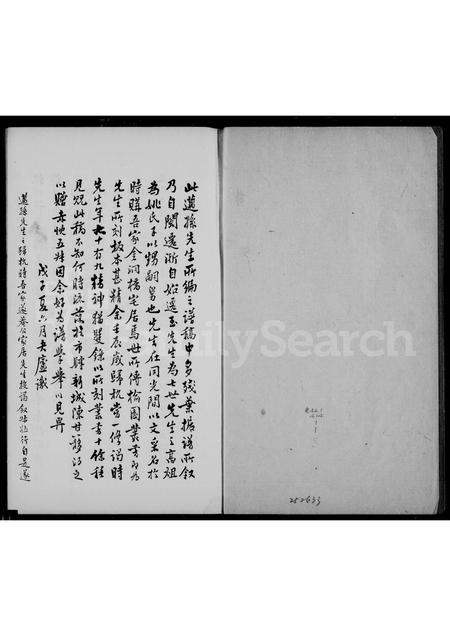 此邁孫先生所編之譜稿中多殘葉據譜所叙
乃自閩遷浙自始遷至先生為七世先生之高祖
為姚氏子以甥嗣舅也先生在同光間以文采名於
時購吾家金洞橋宅居焉世所傳榆園叢書即為
先生所刻板本甚精余壬辰歲歸杭嘗一修謁時
先生年六十有九精神猶矍鑠以所刻叢書十餘種
見貺此稿不知何時流落於市肆新城陳甘簃得之
以贈去忱五姪因余好為譜學舉以見畀
戊子夏六月 廬識
邁孫先生之歸杭時吾家 公家居先生投謁叙
FamilySearch
252633